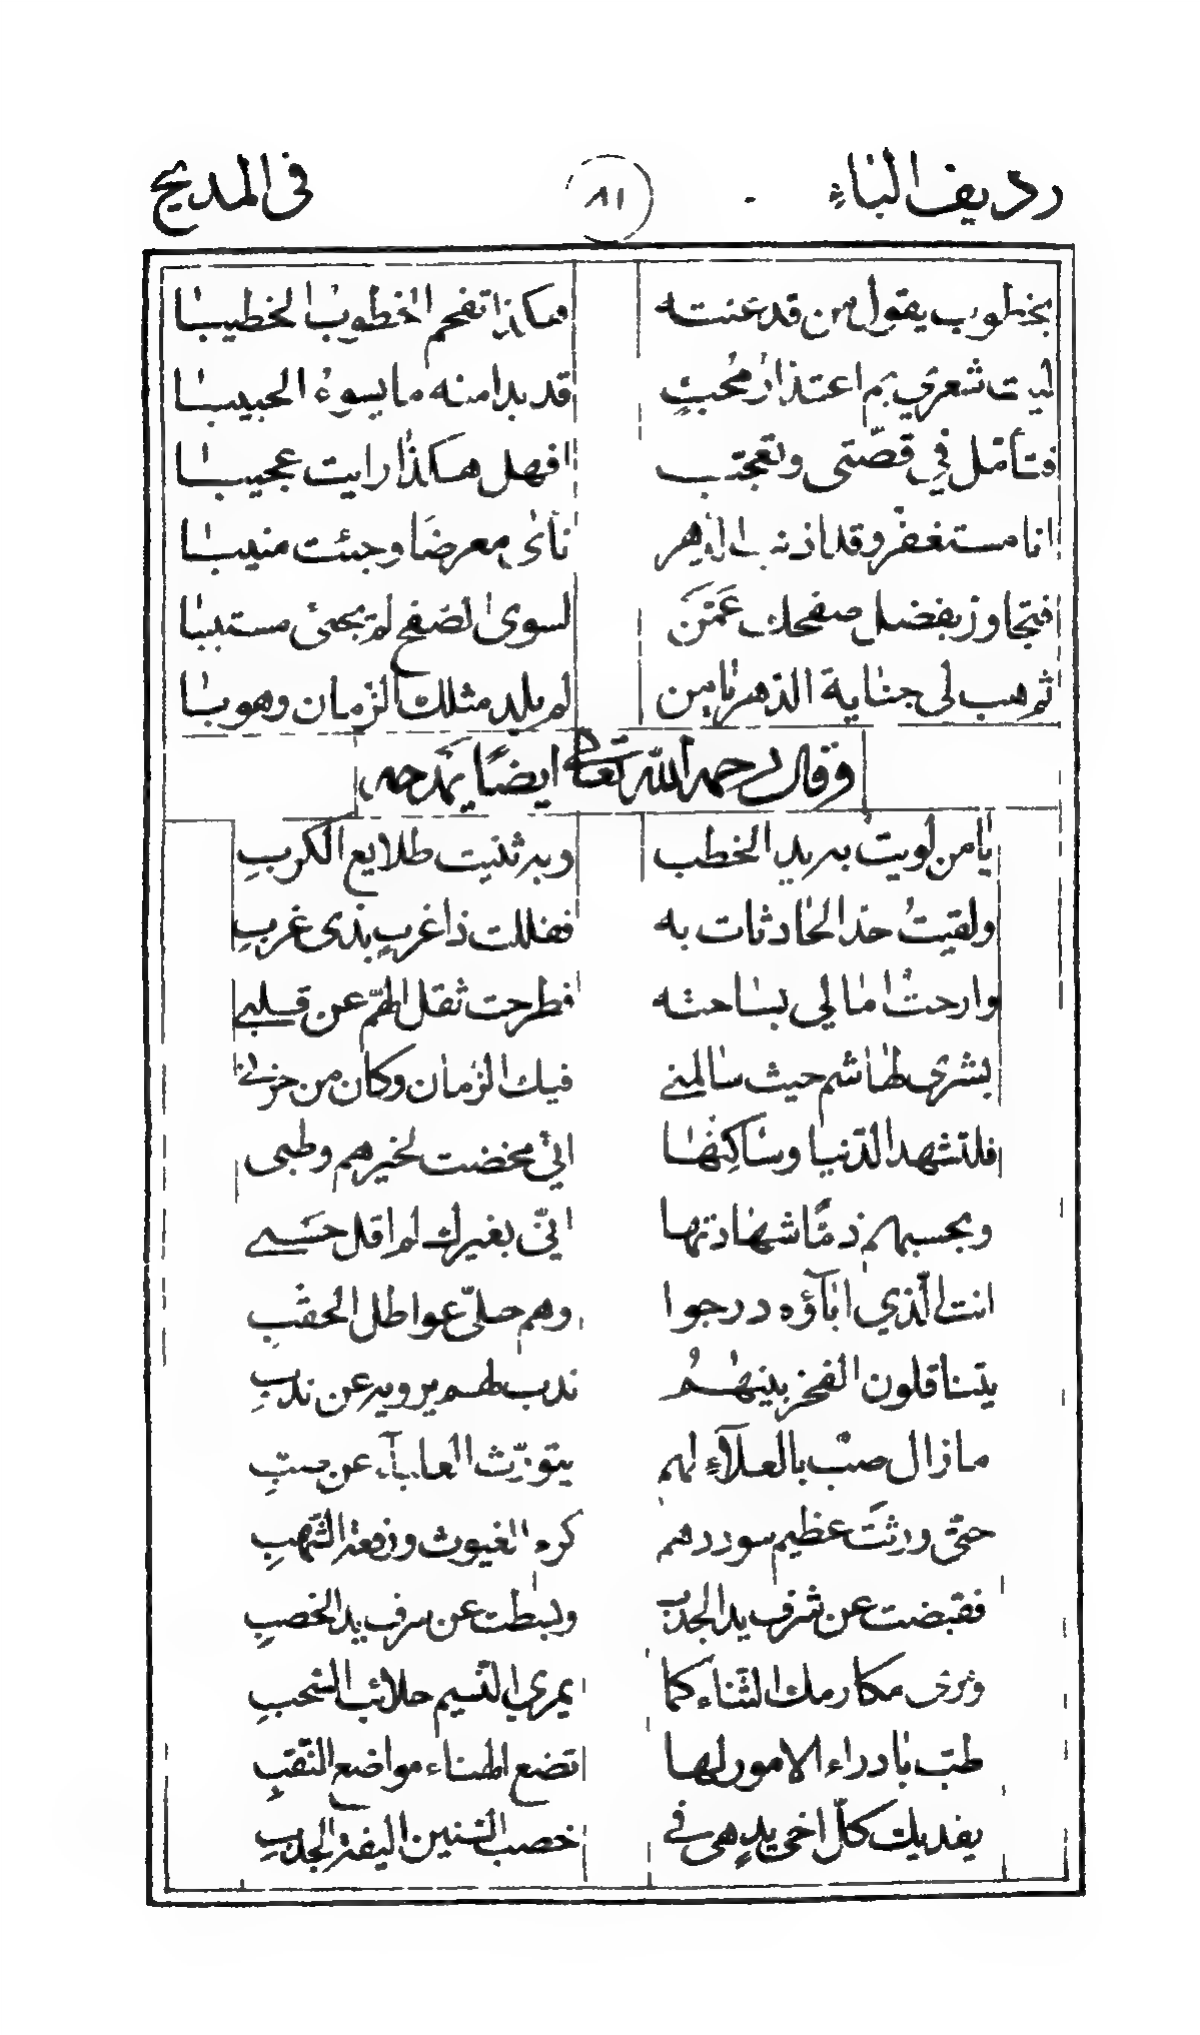 رديف الباء ٨١ في المديح
بخطوب يقول من قد عنته هكذا تفحم الخطوب الخطيبا
ليت شعري بم اعتذار محب قد بدا منه ما يسوء الحبيبا
فتأمل في قصتى وتعجب افهل هكذا رايت عجيبا
انا مستغفر وقد اذنب الدهر نأى معرضا وجئت منيبا
فتجاوز بفضل صفحك عمن لسوى الصفح لم يجئ مستبيبا
ثم هب لي جناية الدهر يا من لم يلد مثلك الزمان وهوبا
وقال رحمه الله تعالى ايضا يمدحه
يا من لويت به يد الخطب وبه ثنيت طلايع الكرب
ولقيت حد الحادثات به ففللت ذا غرب بذى غرب
وارحت امالي بساحته فطرحت ثقل الهم عن قلبي
بشرى لهاشم حيث سالمني فيك الزمان وكان من حربي
فلتشهد الدنيا وساكنها اني محضت لخيرهم وطبى
وبحسبهم ذما شهادتها اني بغيرك لم اقل حسبي
انت الذي اباؤه درجوا وهم حلى عواطل الحقب
يتناقلون الفخر بينهم ندب لهم يرويه عن ندب
ما زال صب بالعلاء لهم يتورث العلياء عن صب
حتى ورثت عظيم سوددهم كرم الغيوث ورفعة الشهب
فقبضت عن شرف يد الجدب وبسطت عن سرف يد الخصب
ومرى مكارمك الثناء كما يمري النسيم حلائب السحب
طب بادراء الامور لها تضع الهناء مواضع النقب
يفديك كل اخى يد هى في خصب السنين اليفة الجدب